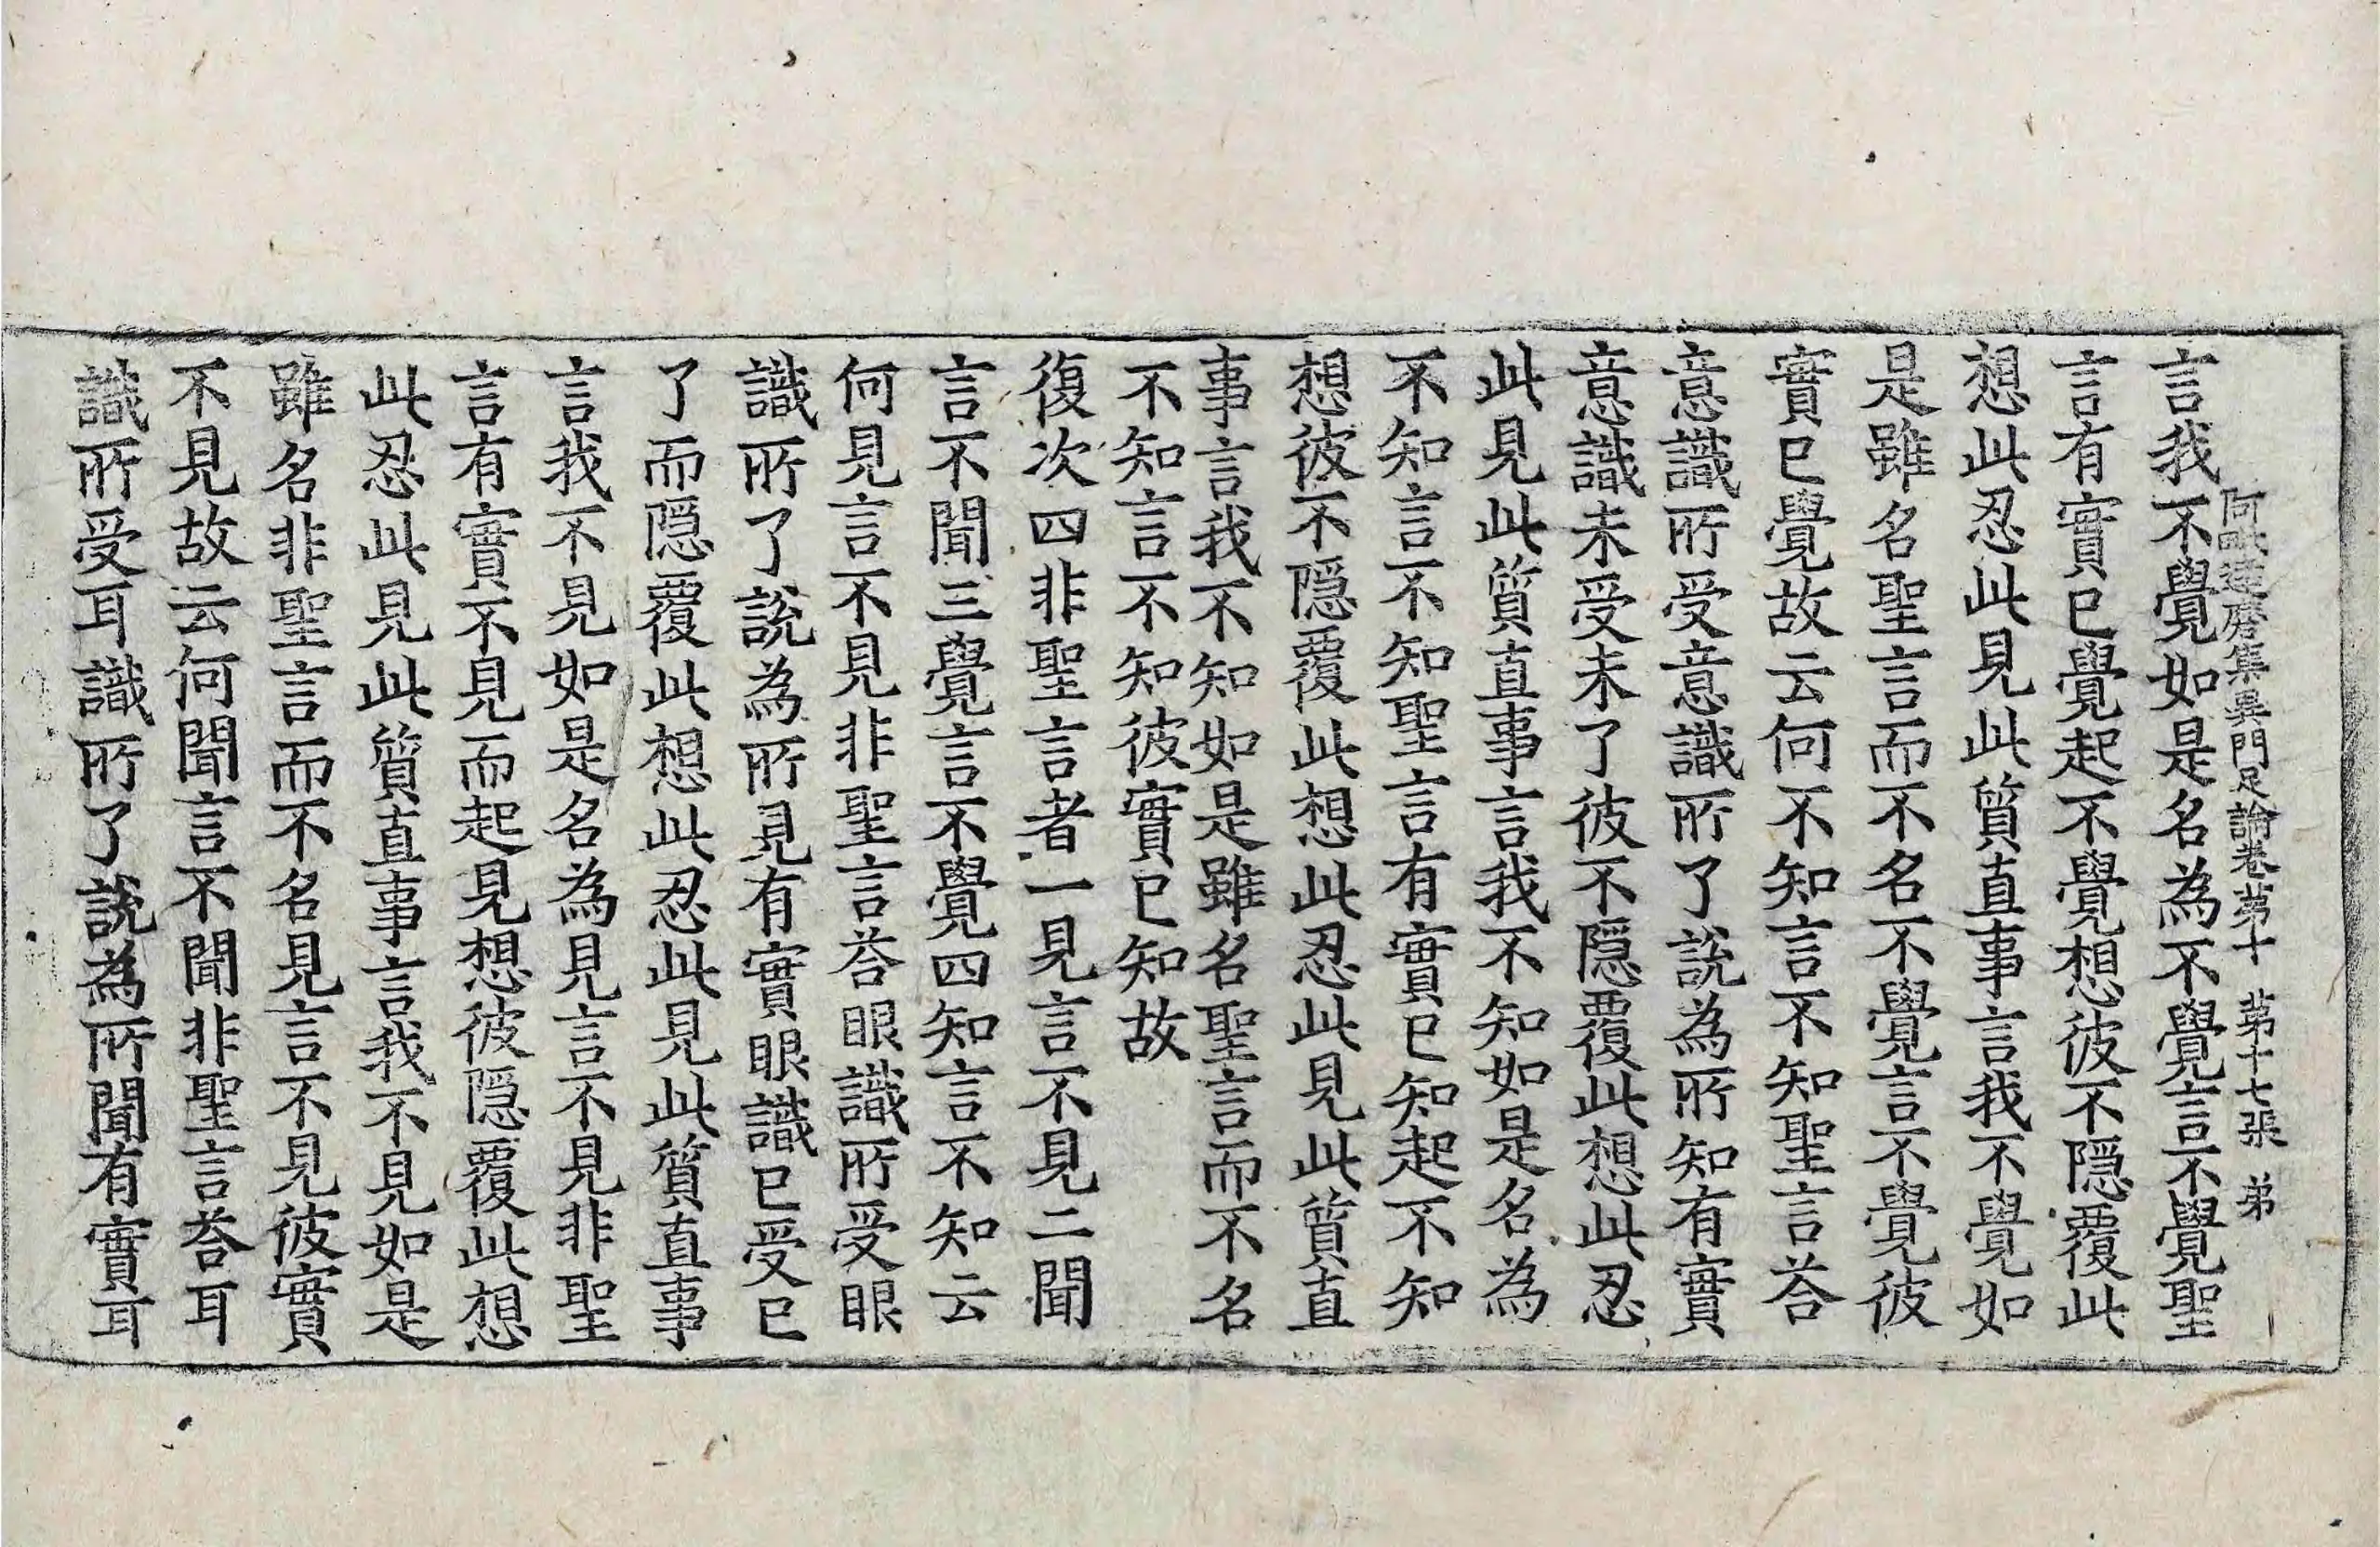 阿毗達磨集異門足論卷第十　第十七張　弟
言我不覺如是名為不覺言不覺聖
言有實已覺起不覺想彼不隱覆此
想此忍此見此質直事言我不覺如
是雖名聖言而不名不覺言不覺彼
實已覺故云何不知言不知聖言荅
意識所受意識所了說為所知有實
意識未受未了彼不隱覆此想此忍
此見此質直事言我不知如是名為
不知言不知聖言有實已知起不知
想彼不隱覆此想此忍此見此質直
事言我不知如是雖名聖言而不名
不知言不知彼實已知故
復次四非聖言者一見言不見二聞
言不聞三覺言不覺四知言不知云
何見言不見非聖言荅眼識所受眼
識所了說為所見有實眼識已受已
了而隱覆此想此忍此見此質直事
言我不見如是名為見言不見非聖
言有實不見而起見想彼隱覆此想
此忍此見此質直事言我不見如是
雖名非聖言而不名見言不見彼實
不見故云何聞言不聞非聖言荅耳
識所受耳識所了說為所聞有實耳